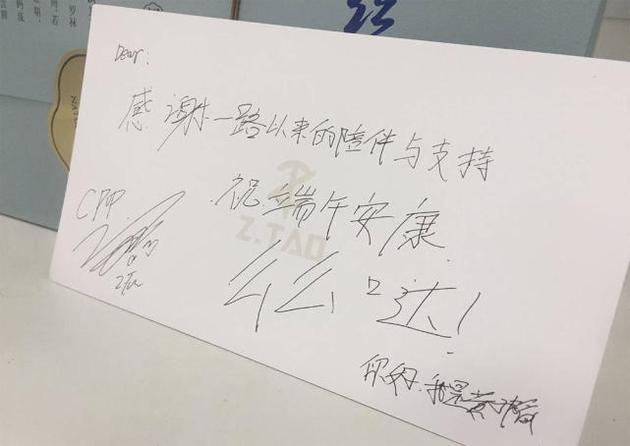 Dear.
感谢一路以来的陪伴与支持
祝端午安康
Z.TAO
CPP
ZTao
么么哒!
你的:我是黄子韬